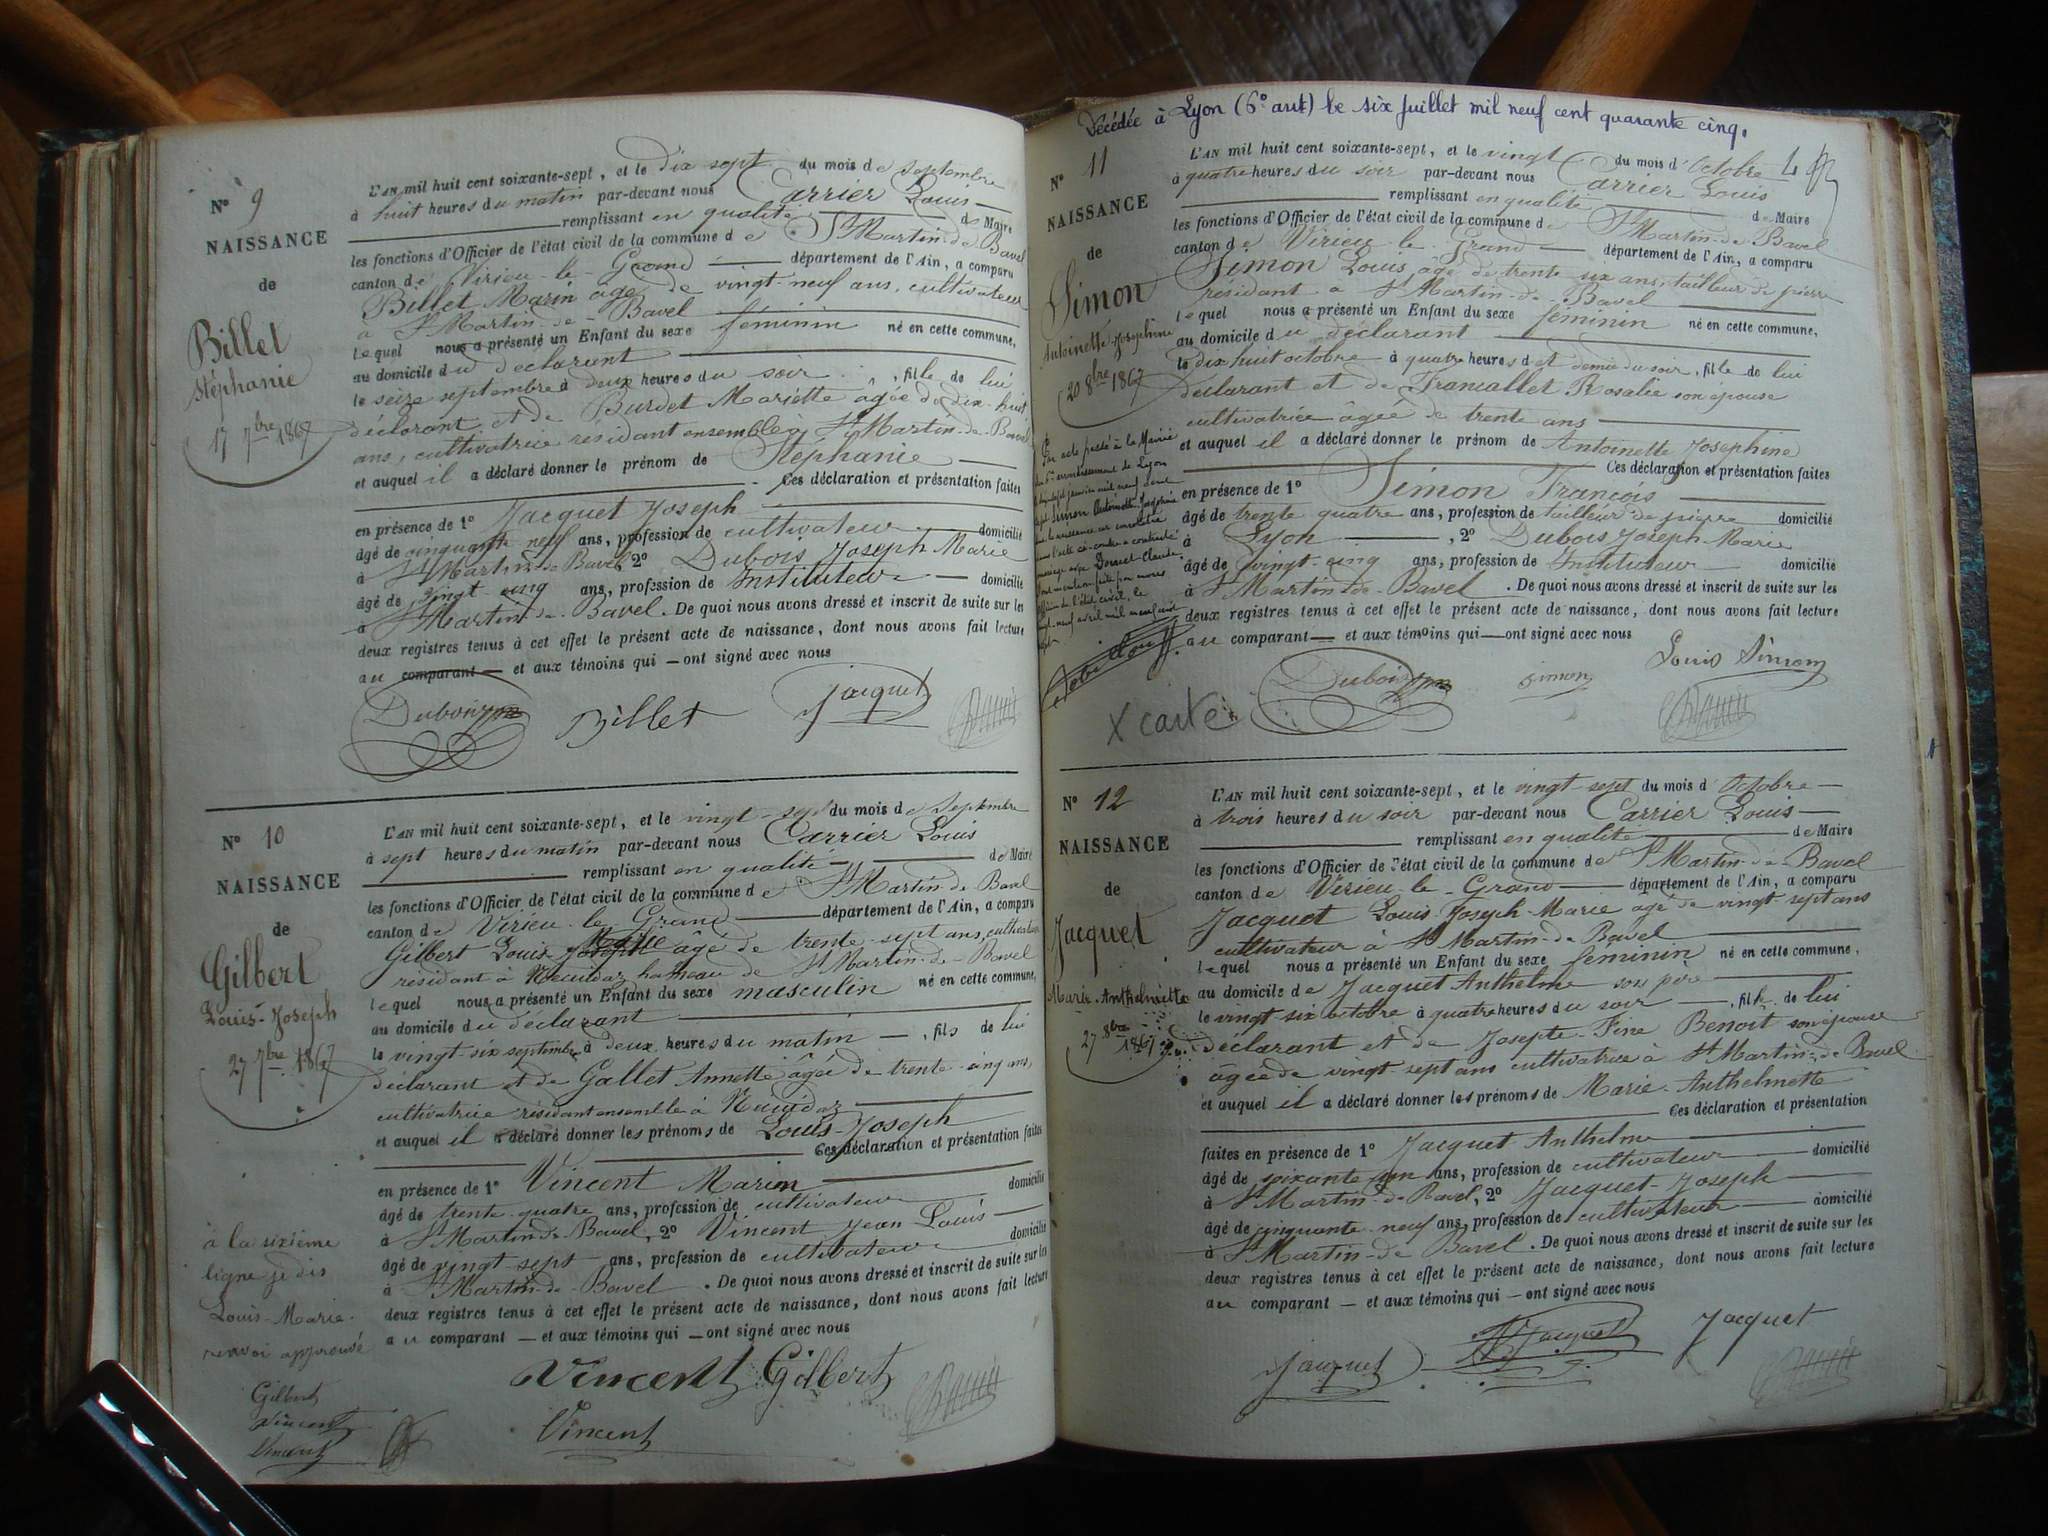 N° 9
NAISSANCE
de
Billet
Stéphanie
17 7bre 1867
L'AN mil huit cent soixante-sept, et le dix sept du mois de septembre
à huit heures du matin par-devant nous Carrier Louis
remplissant en qualité de Maire
les fonctions d'Officier de l'état civil de la commune de St Martin-de Bavel
canton de Virieu-le-Grand département de l'Ain, a comparu
Billet Marin âgé de vingt-neuf ans, cultivateur
à St Martin-de-Bavel
lequel nous a présenté un Enfant du sexe féminin né en cette commune,
au domicile du déclarant
le seize septembre à deux heures du soir, fille de lui
déclarant et de Burdet Mariette âgée de dix-huit
ans, cultivatrice résidant ensemble à St Martin-de-Bavel
et auquel il a déclaré donner le prénom de Stéphanie
Ces déclaration et présentation faites
en présence de 1° Jacquet Joseph
âgé de cinquante neuf ans, profession de cultivateur domicilié
à St Martin-de Bavel 2° Dubois Joseph Marie
âgé de vingt-cinq ans, profession de Instituteur domicilié
à St Martin-de-Bavel. De quoi nous avons dressé et inscrit de suite sur les
deux registres tenus à cet effet le présent acte de naissance, dont nous avons fait lecture
au comparant et aux témoins qui ont signé avec nous
Dubois jm Billet Jacquet
N° 10
NAISSANCE
de
Gilbert
Louis-Joseph
27 7bre 1867
L'AN mil huit cent soixante-sept, et le vingt-sept du mois de Septembre
à sept heures du matin par-devant nous Carrier Louis
remplissant en qualité de Maire
les fonctions d'Officier de l'état civil de la commune de St Martin-de Bavel
canton de Virieu-le-Grand département de l'Ain, a comparu
Marie
Gilbert Louis-Joseph âgé de trente-sept ans, cultivateur
résidant à hameau de St Martin-de-Bavel
lequel nous a présenté un Enfant du sexe masculin né en cette commune,
au domicile du déclarant
le vingt six septembre à deux heures du matin, fils de lui
déclarant et de Gallet Annette âgée de trente-cinq ans,
cultivatrice résidant ensemble à
et auquel il a déclaré donner les prénoms de Louis-Joseph
Ces déclaration et présentation faites
en présence de 1° Vincent Marin
âgé de trente-quatre ans, profession de cultivateur domicilié
à St Martin-de Bavel, 2° Vincent Jean Louis
âgé de vingt-sept ans, profession de cultivateur domicilié
à St Martin-de-Bavel. De quoi nous avons dressé et inscrit de suite sur les
deux registres tenus à cet effet le présent acte de naissance, dont nous avons fait lecture
au comparant et aux témoins qui ont signé avec nous
Vincent Gilbert
Vincent
à la sixième
ligne je dis
Louis-Marie.
renvoi approuvé
Gilbert
Vincent
Vincent
Décédée à Lyon (6° arrt) le six Juillet mil neuf cent quarante cinq.
N° 11
NAISSANCE
de
Simon
Antoinette Josephine
20 8bre 1867
L'AN mil huit cent soixante-sept, et le vingt du mois d'Octobre
à quatre heures du soir par-devant nous Carrier Louis
remplissant en qualité de Maire
les fonctions d'Officier de l'état civil de la commune de St Martin-de Bavel
canton de Virieu-le-Grand département de l'Ain, a comparu
Simon Louis, âgé de trente six ans, tailleur de pierre
résidant à St Martin-de-Bavel
lequel nous a présenté un Enfant du sexe féminin né en cette commune,
au domicile du déclarant
le dix huit octobre à quatre heures et demie du soir, fille de lui
déclarant et de Francallet Rosalie son épouse
cultivatrice âgée de trente ans
et auquel il a déclaré donner le prénom de Antoinette Josephine
Ces déclaration et présentation faites
en présence de 1° Simon François
âgé de trente quatre ans, profession de tailleur de pierre domicilié
à Lyon, 2° Dubois Joseph-Marie
âgé de vingt-cinq ans, profession de Instituteur domicilié
à St Martin-de-Bavel. De quoi nous avons dressé et inscrit de suite sur les
deux registres tenus à cet effet le présent acte de naissance, dont nous avons fait lecture
au comparant et aux témoins qui ont signé avec nous
Par acte passé à la Mairie
du 6me arrondissement de Lyon
le dix-sept janvier mil neuf cent
sept Simon Antoinette Josephine
dont la naissance est constatée
dans l'acte ci-contre a contracté
mariage avec Claude
dont mention faite par nous
officier de l'état civil, le
vingt-neuf avril mil neuf cent
sept
Louis Simon
Dubois jm Simon
X carte
N° 12
NAISSANCE
de
Jacquet
Marie-Anthelmette
27 8bre 1867
L'AN mil huit cent soixante-sept, et le vingt-sept du mois d'Octobre
à trois heures du soir par-devant nous Carrier Louis
remplissant en qualité de Maire
les fonctions d'Officier de l'état civil de la commune de St Martin-de Bavel
canton de Virieu-le-Grand département de l'Ain, a comparu
Jacquet Louis Joseph-Marie âgé de vingt sept ans
cultivateur à St Martin-de Bavel
lequel nous a présenté un Enfant du sexe féminin né en cette commune,
au domicile de Jacquet Anthelme son père
le vingt six octobre à quatre heures du soir, fille de lui
déclarant et de Josepte-Fine Benoit son épouse
âgée de vingt-sept ans cultivatrice à St Martin-de Bavel
et auquel il a déclaré donner les prénoms de Marie-Anthelmette
Ces déclaration et présentation
faites en présence de 1° Jacquet Anthelme
âgé de soixante un ans, profession de cultivateur domicilié
à St Martin-de Bavel, 2° Jacquet Joseph
âgé de cinquante-neuf ans, profession de cultivateur domicilié
à St Martin-de Bavel. De quoi nous avons dressé et inscrit de suite sur les
deux registres tenus à cet effet le présent acte de naissance, dont nous avons fait lecture
au comparant et aux témoins qui ont signé avec nous
Jacquet Jacquet Jacquet